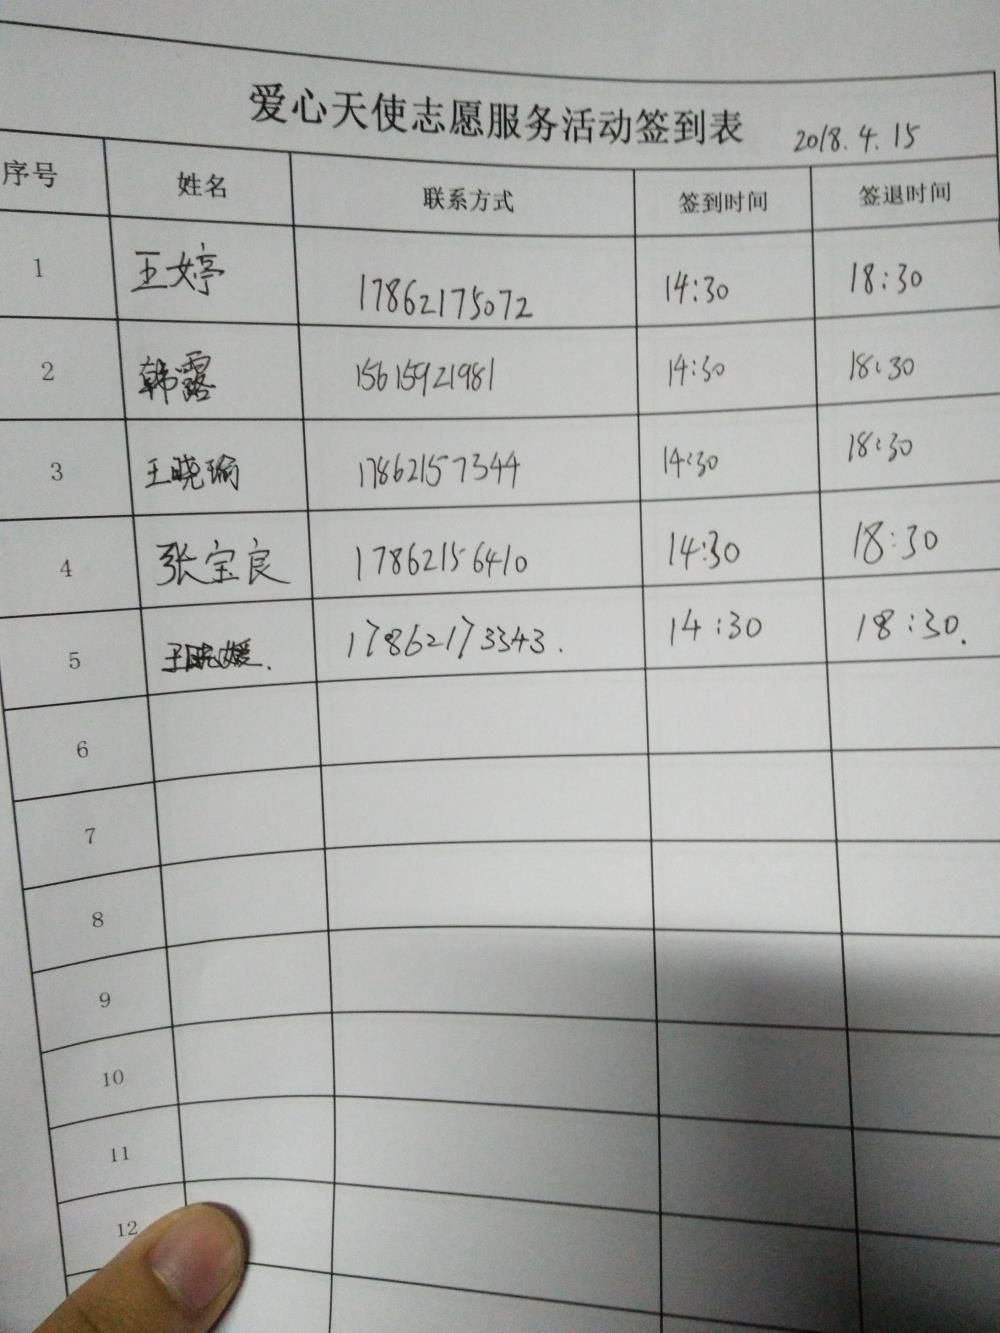 爱心天使志愿服务活动签到表 2018.4.15
序号 姓名 联系方式 签到时间 签退时间
1 王婷 17862175072 14:30 18:30
2 韩露 15615921981 14:30 18:30
3 王晓瑜 17862157344 14:30 18:30
4 张宝良 17862156410 14:30 18:30
5 17862173343. 14:30 18:30.
6
7
8
9
10
11
12